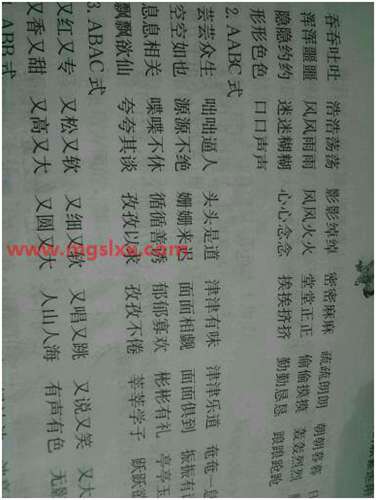 吞吞吐吐 浩浩荡荡 影影绰绰 密密麻麻 疏疏朗朗 朝朝暮暮
浑浑噩噩 风风雨雨 风风火火 堂堂正正 偷偷摸摸 轰轰烈烈
隐隐约约 迷迷糊糊 心心念念 挨挨挤挤 勤勤恳恳 踉踉跄跄
形形色色 口口声声
2. AABC 式
芸芸众生 咄咄逼人 头头是道 津津有味 津津乐道 奄奄一
空空如也 源源不绝 姗姗来迟 面面相觑 面面俱到 振振有
息息相关 喋喋不休 循循善诱 郁郁寡欢 彬彬有礼 亭亭玉
飘飘欲仙 夸夸其谈 孜孜以求 孜孜不倦 莘莘学子 跃跃欲
3. ABAC 式
又红又专 又松又软 又细又软 又唱又跳 又说又笑 又大
又香又甜 又高又大 又圆又大 人山人海 有声有色 无
ABB 式
www.mgslxa.com